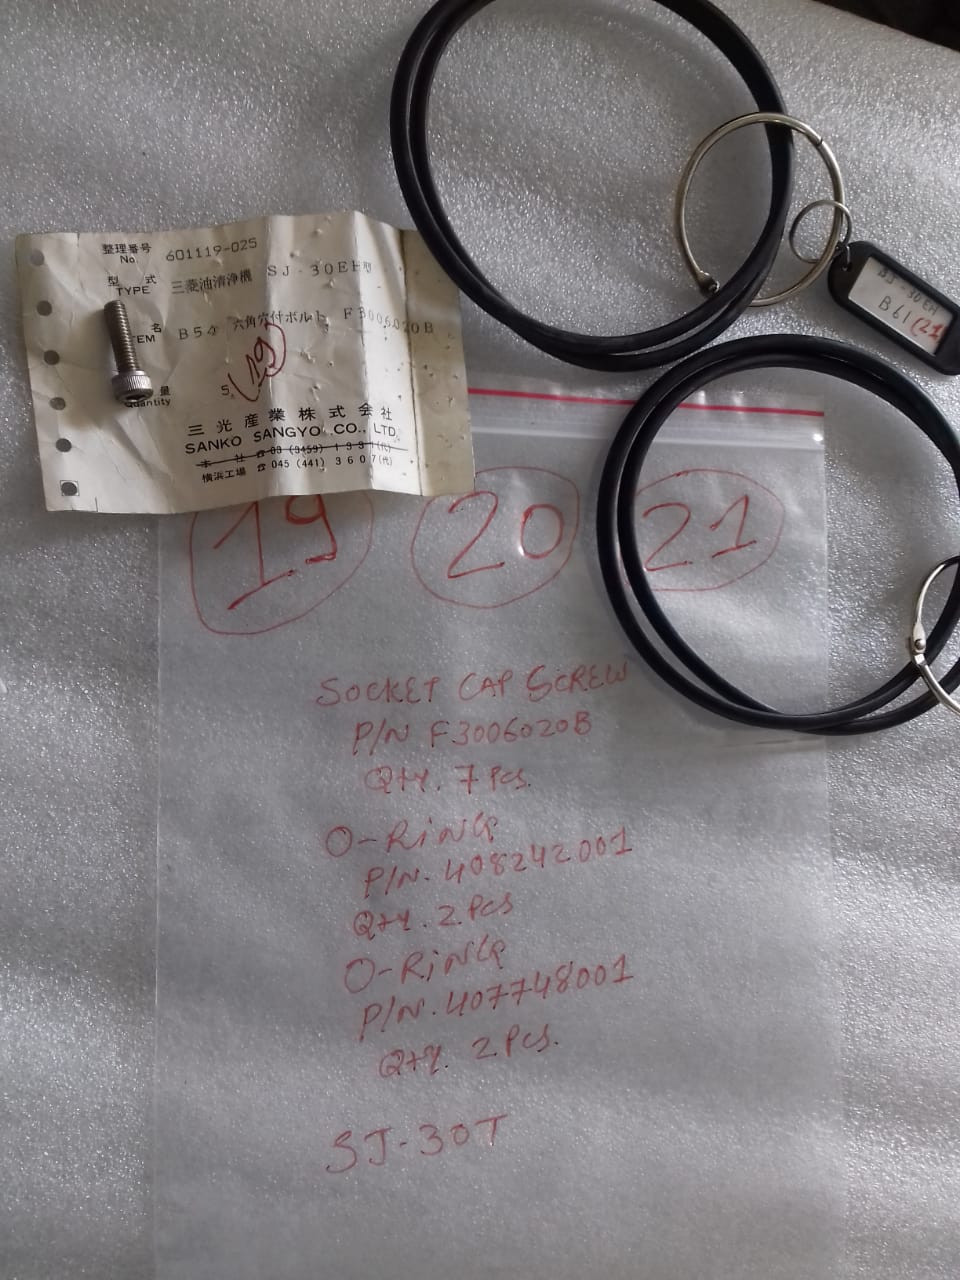 整理番号
No. 601119-025
型式
TYPE 三菱油清浄機 SJ-30EH型
名
TEM B54 六角穴付ボルト F3006020B
19
量
Quantity S
三光産業株式会社
SANKO SANGYO CO., LTD.
本社 ☎03 (3459) 1391(代)
横浜工場 ☎045 (441) 3607(代)
SJ-30EH
B61(21)
19 20 21
SOCKET CAP SCREW
P/N F3006020B
Qty. 7 Pcs.
O-RING
P/N. 408242001
Qty. 2 Pcs
O-RING
P/N. 407748001
Qty. 2 Pcs.
SJ-30T